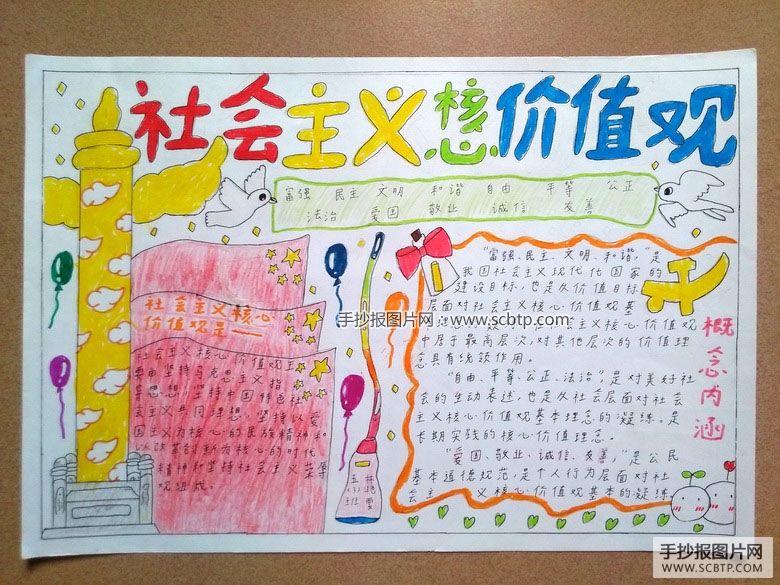 社会主义核心价值观
富强 民主 文明 和谐 自由 平等 公正
法治 爱国 敬业 诚信 友善
社会主义核心
价值观是——
社会主义核心价值观主
要由坚持马克思主义指
导思想,坚持中国特色社
会主义共同理想,坚持以爱
国主义为核心的民族精神和
以改革创新为核心的时代
精神和坚持社会主义荣辱
观组成。
手抄报图片网:www.scbtp.com
“富强、民主、文明、和谐,”是
我国社会主义现代化国家的
建设目标,也是从价值目标
层面对社会主义核心价值观基
主义核心价值观
中居于最高层次,对其他层次的价值理
念具有统领作用。
“自由、平等、公正、法治”,是对美好社
会的生动表述,也是从社会层面对社会
主义核心价值观基本理念的凝练。是
长期实践的核心价值理念。
“爱国、敬业、诚信、友善,”是公民
基本道德规范,是个人行为层面对社
会主义核心价值观基本的凝练
概念内涵
手抄报图片网
WWW.SCBTP.COM